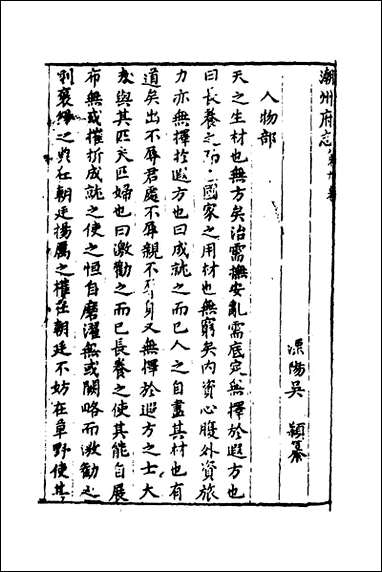 潮州府志卷十
溧陽吳 穎纂
人物部
天之生材也無方矣治需撫安亂需底定無擇於遐方也
曰長養之而已國家之用材也無窮矣內資心腹外資旅
力亦無擇於遐方也曰成就之而已人之自盡其材也有
道矣出不辱君處不辱親不身又無擇於遐方之士大
夫與其匹夫匹婦也曰激勸之而已長養之使其能自展
布無或摧折成就之使之恒自磨濯無或闕略而激勸之
則褒之典在朝廷揚厲之權在朝廷不妨在草野使其